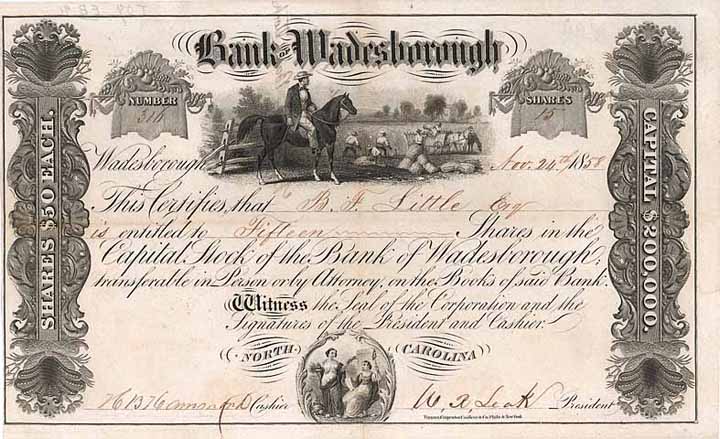 Bank of Wadesborough
NUMBER
316
SHARES
15
SHARES $50 EACH.
CAPITAL $200,000.
Wadesborough Nov. 24th 1858
This Certifies, that B. F. Little Esq
is entitled to Fifteen Shares in the
Capital Stock of the Bank of Wadesborough,
transferable in Person or by Attorney, on the Books of said Bank.
Witness the Seal of the Corporation and the
Signatures of the President and Cashier.
NORTH CAROLINA
Cashier W. R. Leak President